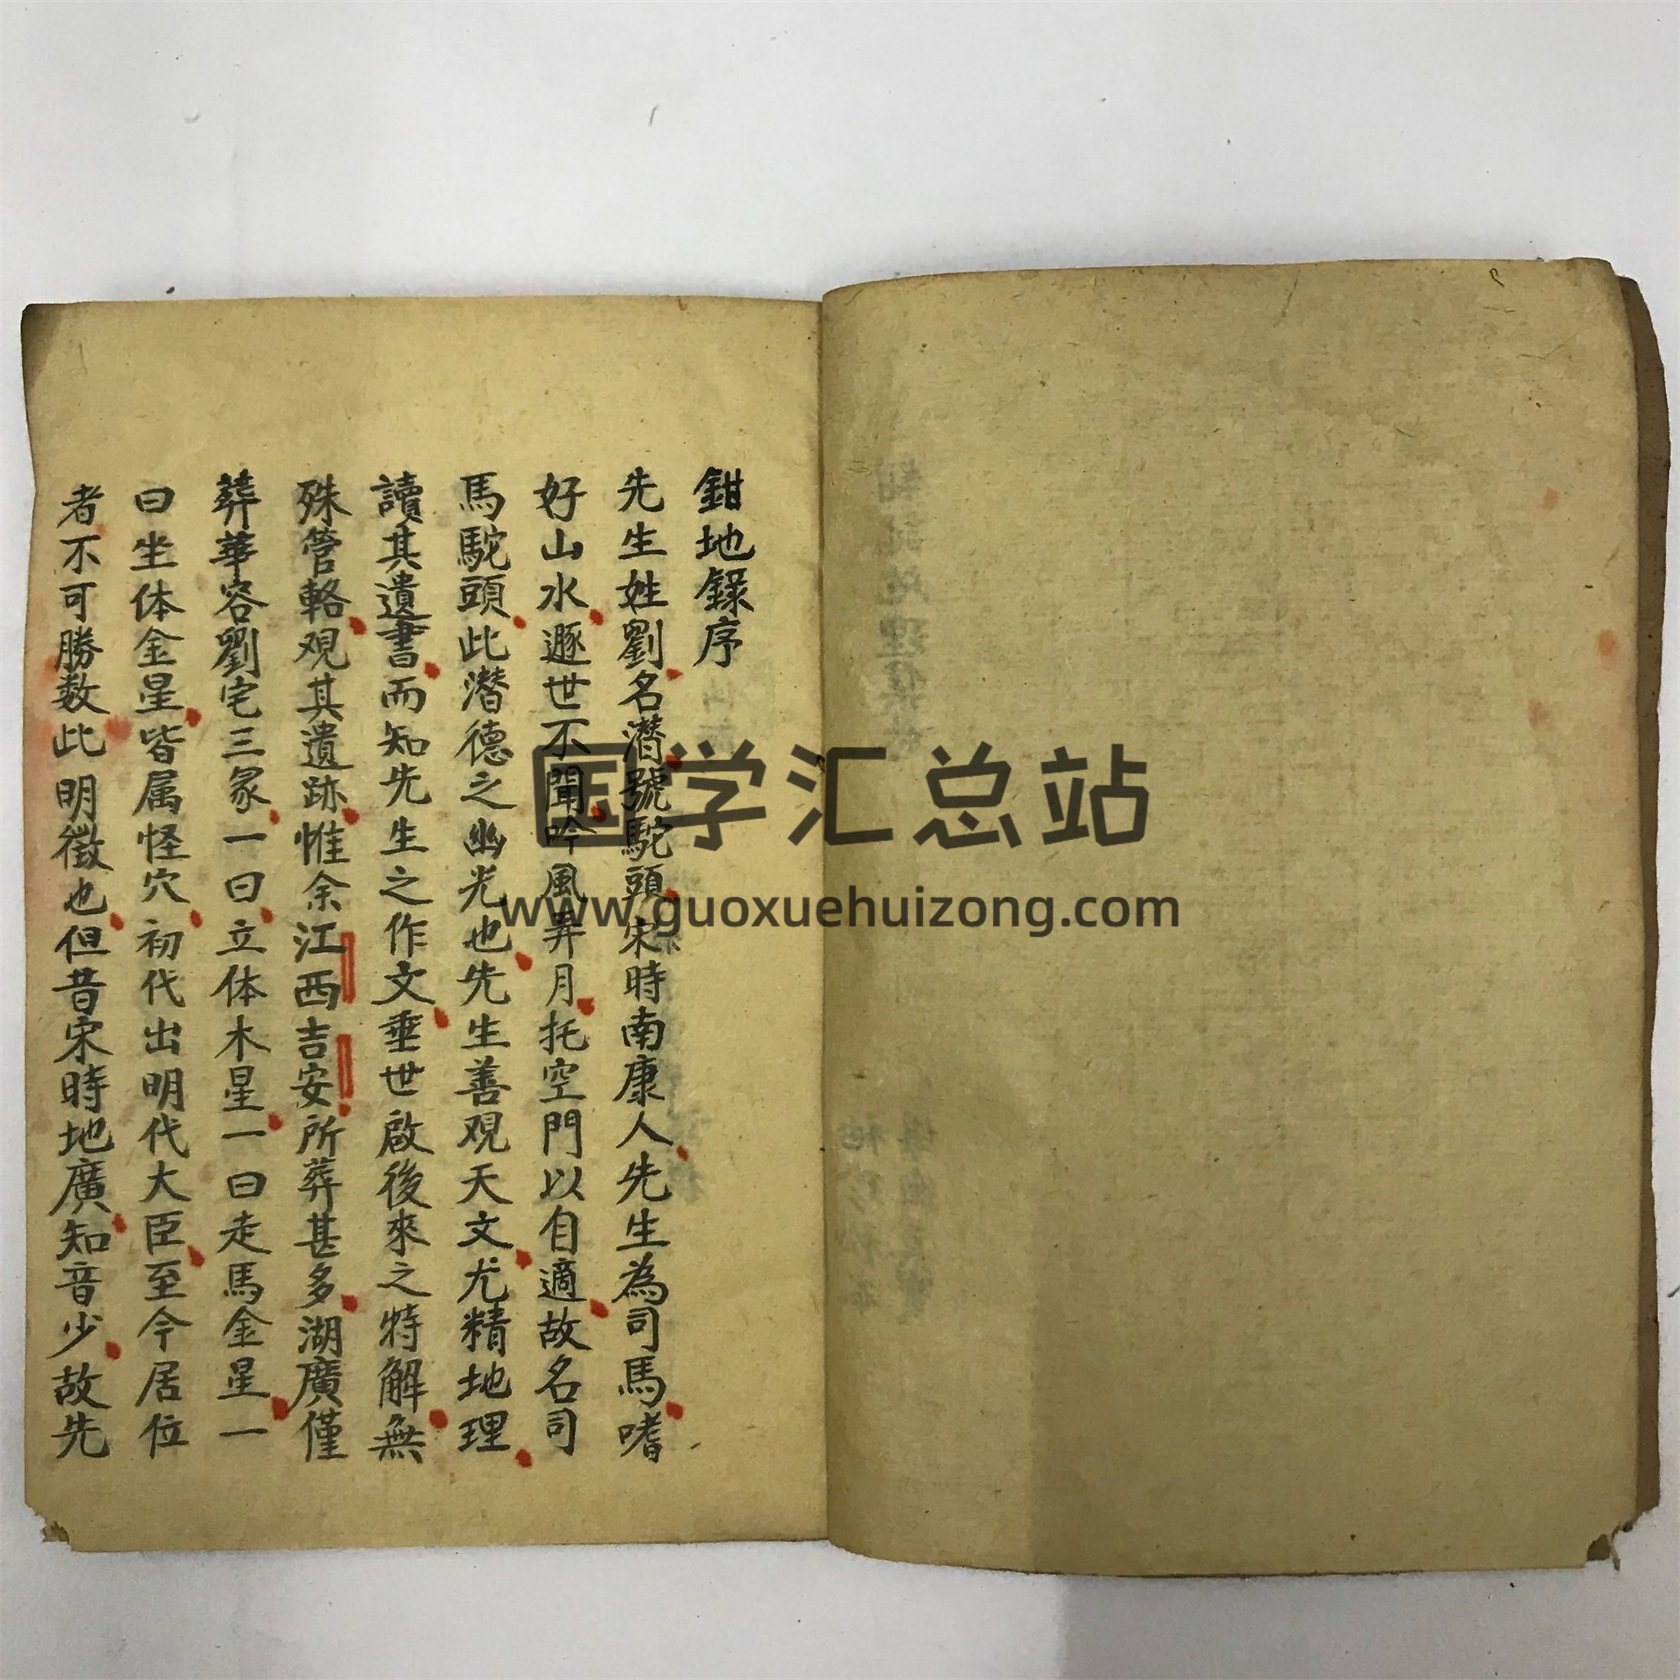 鉗地錄序
先生姓劉名潛號駝頭宋時南康人先生為司馬嗜
好山水遯世不聞吟風弄月托空門以自適故名司
馬駝頭此潛德之幽光也先生善观天文尤精地理
讀其遺書而知先生之作文垂世啟後來之特解無
殊管輅观其遺跡惟余江西吉安所葬甚多湖廣僅
葬華容劉宅三冢一曰立体木星一曰走馬金星一
曰坐体金星皆属怪穴初代出明代大臣至今居位
者不可勝数此明徵也但昔宋時地廣知音少故先
国学汇总站
www.guoxuehuizong.com